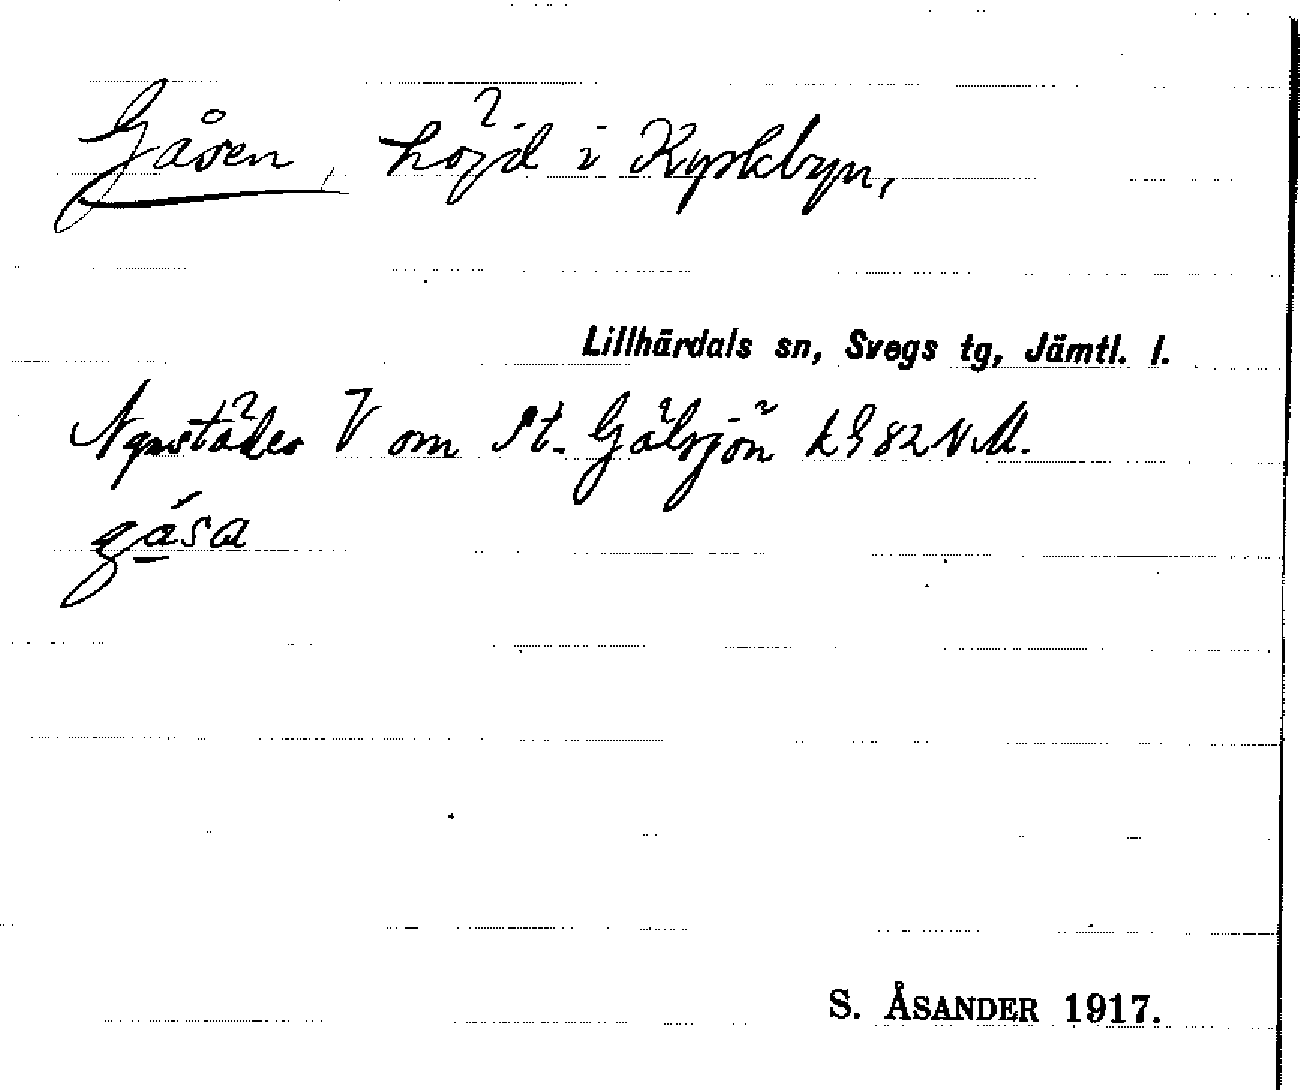 Gåsen, höjd i Kyrkbyn,
Lillhärdals sn, Svegs tg, Jämtl. l.
V om St. Gåsjön 82 N.M.
gåsa
S. ÅSANDER 1917.